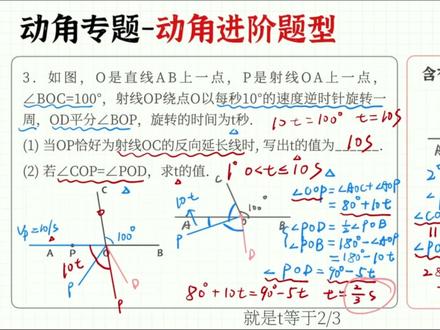 动角专题-动角进阶题型
3. 如图, O是直线AB上一点, P是射线OA上一点,
∠BOC=100°, 射线OP绕点O以每秒10°的速度逆时针旋转一
周, OD平分∠BOP, 旋转的时间为t秒. 10t=100° t=10s
(1) 当OP恰好为射线OC的反向延长线时, 写出t的值为 10s .
(2) 若∠COP=∠POD, 求t的值. 1° 0<t≤10s
C
C
∠COP=∠AOC+∠AOP
=80+10t
∠POD=½∠BOP
∠BOP=180-∠AOP
=180-10t
∠POD=90-5t
Vp=10/s
100°
A P O B
10t
P
D
10t
100°
A O B
P
D
80+10t=90-5t t=2/3 s
就是t等于2/3
含